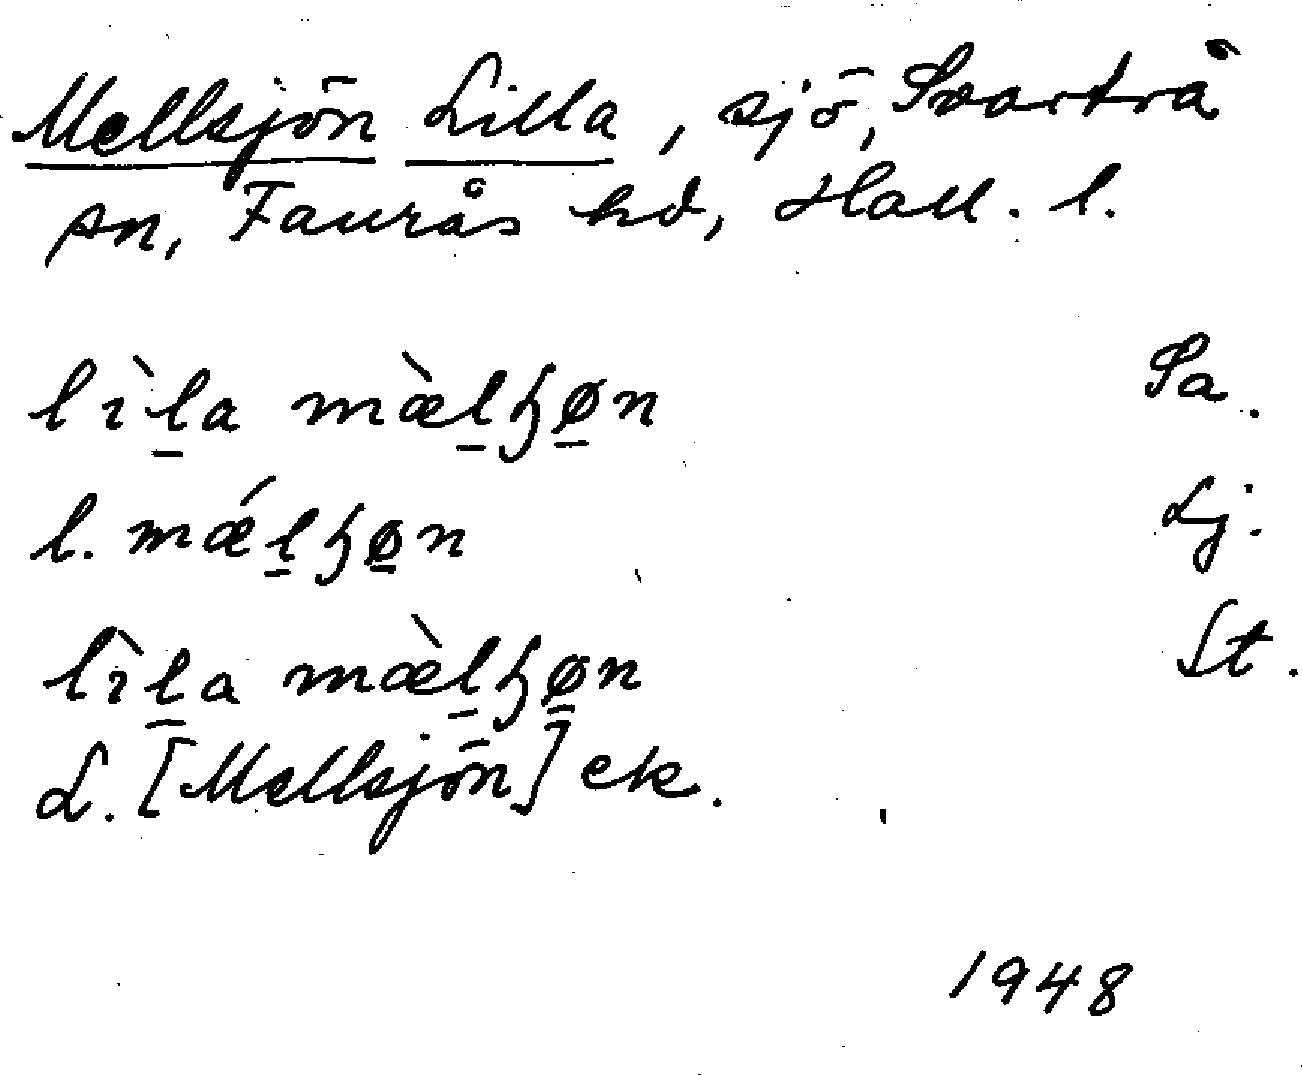 Mellsjön Lilla, sjö, Svartrå
sn, Faurås hd, Hall. l.
lìl̠a mæ̀l̠ꜧø̠n Sa.
l. mǽl̠ꜧø̠n Lj.
lìl̠a mæ̀l̠ꜧø̠n St.
L. [Mellsjön] ek.
1948